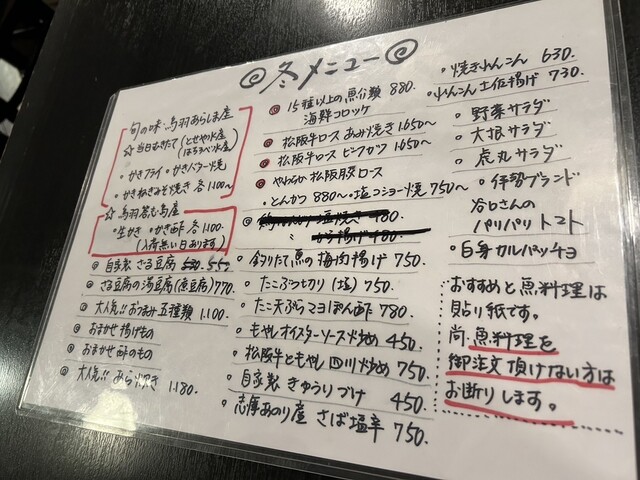 冬メニュー
旬の味・鳥羽あらしま産
☆当日むきたて
・かきフライ・かきバター焼
・かきねぎみそ焼き 各1100~
☆鳥羽答志島産
・生かき・かき酢 各1100.
(入荷無い日あります)
自家製 ざる豆腐 550
ざる豆腐の湯豆腐(煮豆腐)770
大人気!!おつまみ五種類 1,100.
おまかせ揚げもの
おまかせ酢のもの
大人気!! あら炊き 1180.
15種以上の魚介類 880.
海鮮コロッケ
松阪牛ロース あみ焼き 1.650~
松阪牛ロース ビフカツ 1.650~
やわらか松阪豚ロース
・とんかつ 880~・塩コショー焼 750~
釣りたて魚の梅肉揚げ 750.
・たこぶつ切り(塩) 750.
・たこ天ぷらマヨぽん酢 780.
・もやしオイスターソース炒め 450.
・松阪牛ともやし四川炒め 750.
・自家製 きゅうりづけ 450.
・志摩あのり産 さば塩辛 750.
・焼きれんこん 630.
・れんこん土佐揚げ 730.
・野菜サラダ
・大根サラダ
・虎丸サラダ
・伊勢ブランド
谷口さんの
パリパリトマト
・白身カルパッチョ
おすすめと魚料理は
貼り紙です。
尚、魚料理を
御注文頂けない方は
お断りします。